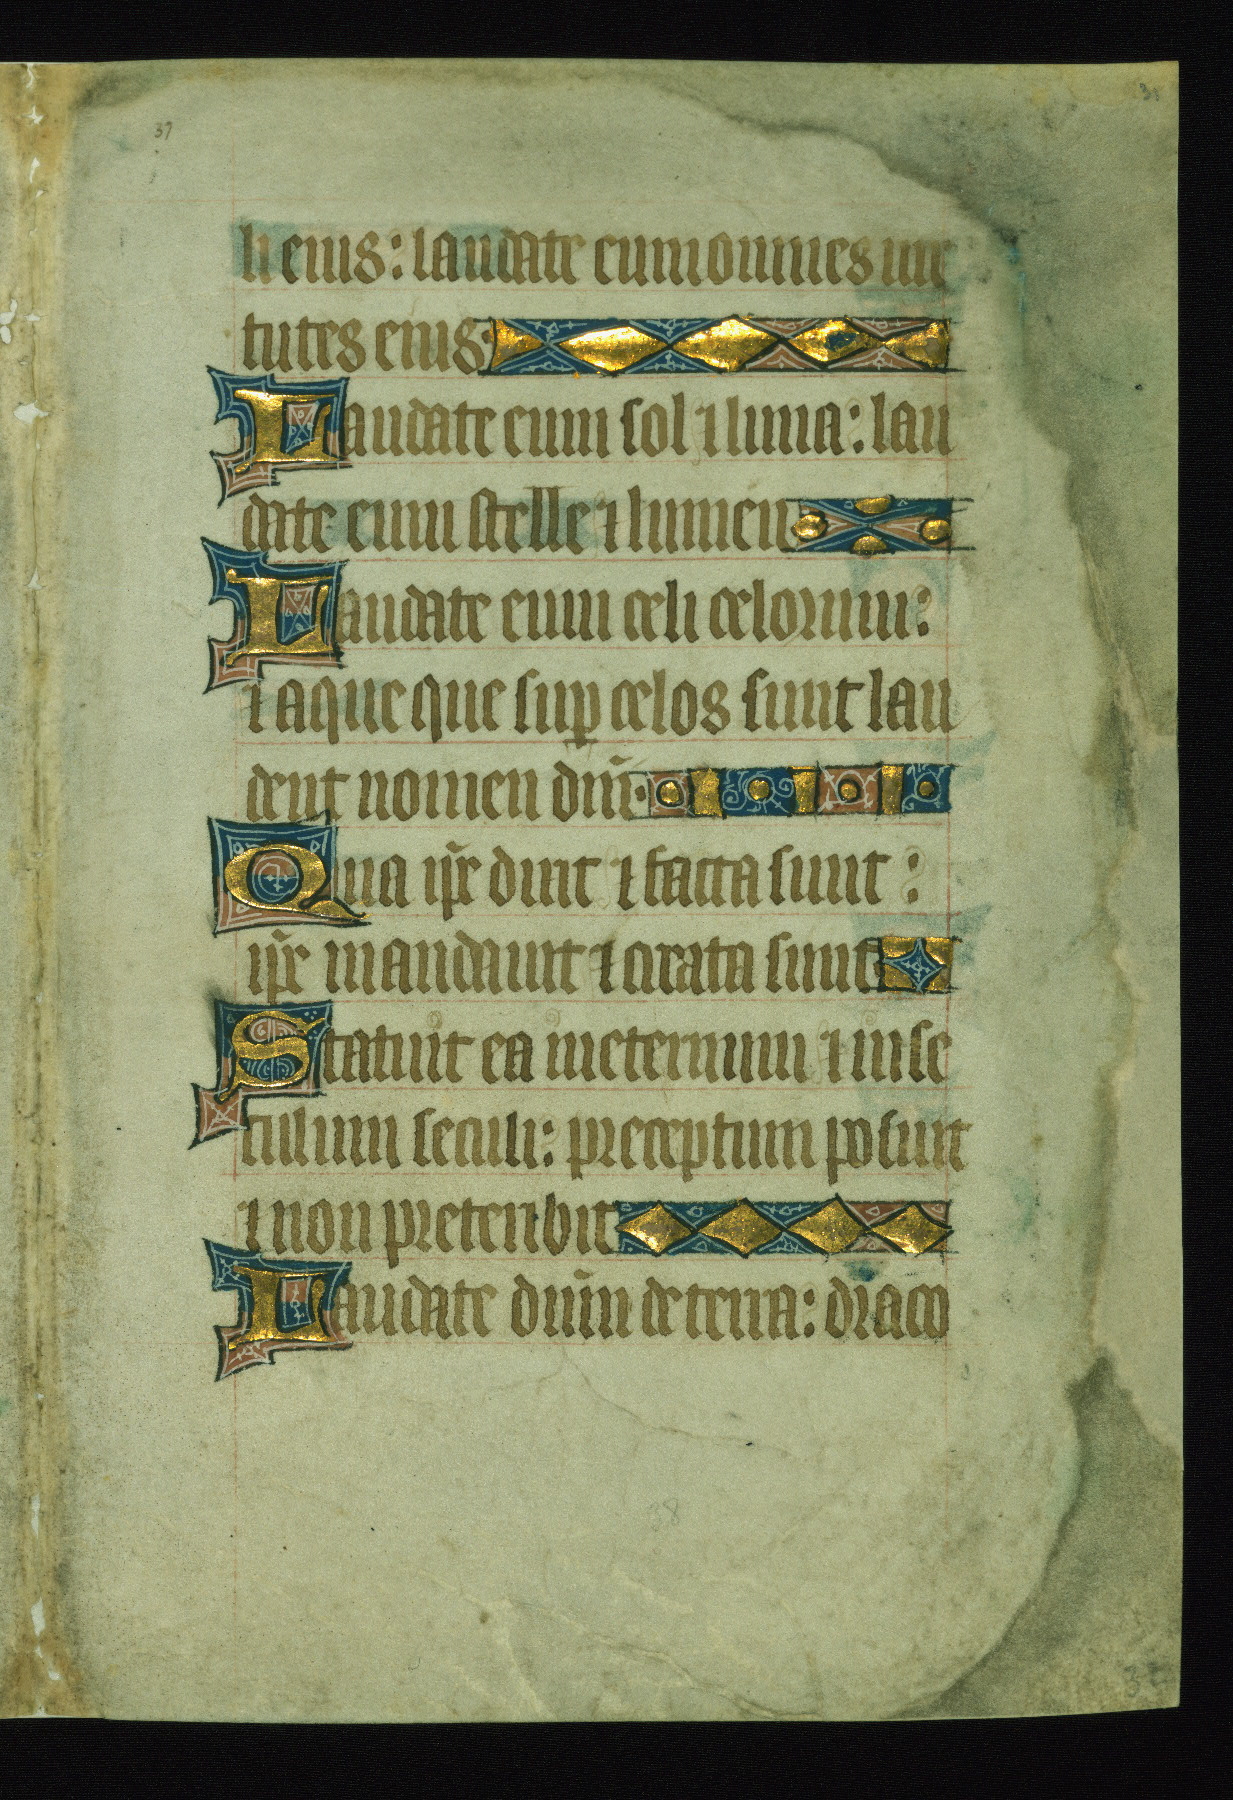 37
31
li eius: laudate eum omnes uir
tutes eius.
Laudate eum sol ⁊ luna: lau
date eum stelle ⁊ lumen
Laudate eum celi celorum:
⁊ aque que suꝑ celos sunt lau
dent nomen dn̄i.
Quia ip̄e dixit ⁊ facta sunt:
ip̄e mandauit ⁊ creata sunt
Statuit ea in eternum ⁊ in se
culum seculi: preceptum posuit
⁊ non preteribit
Laudate dn̄m de terra: draco
38